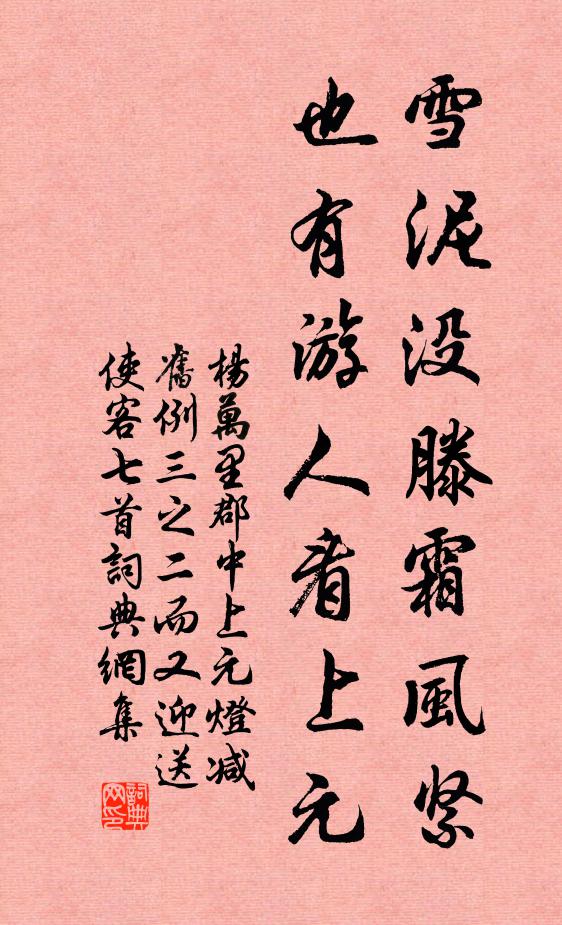 雪泥没滕霜風紧
也有游人看上元
楊萬里郡中上元燈减
舊例三之二而又迎送
使客七首詞典網集
詞典网印